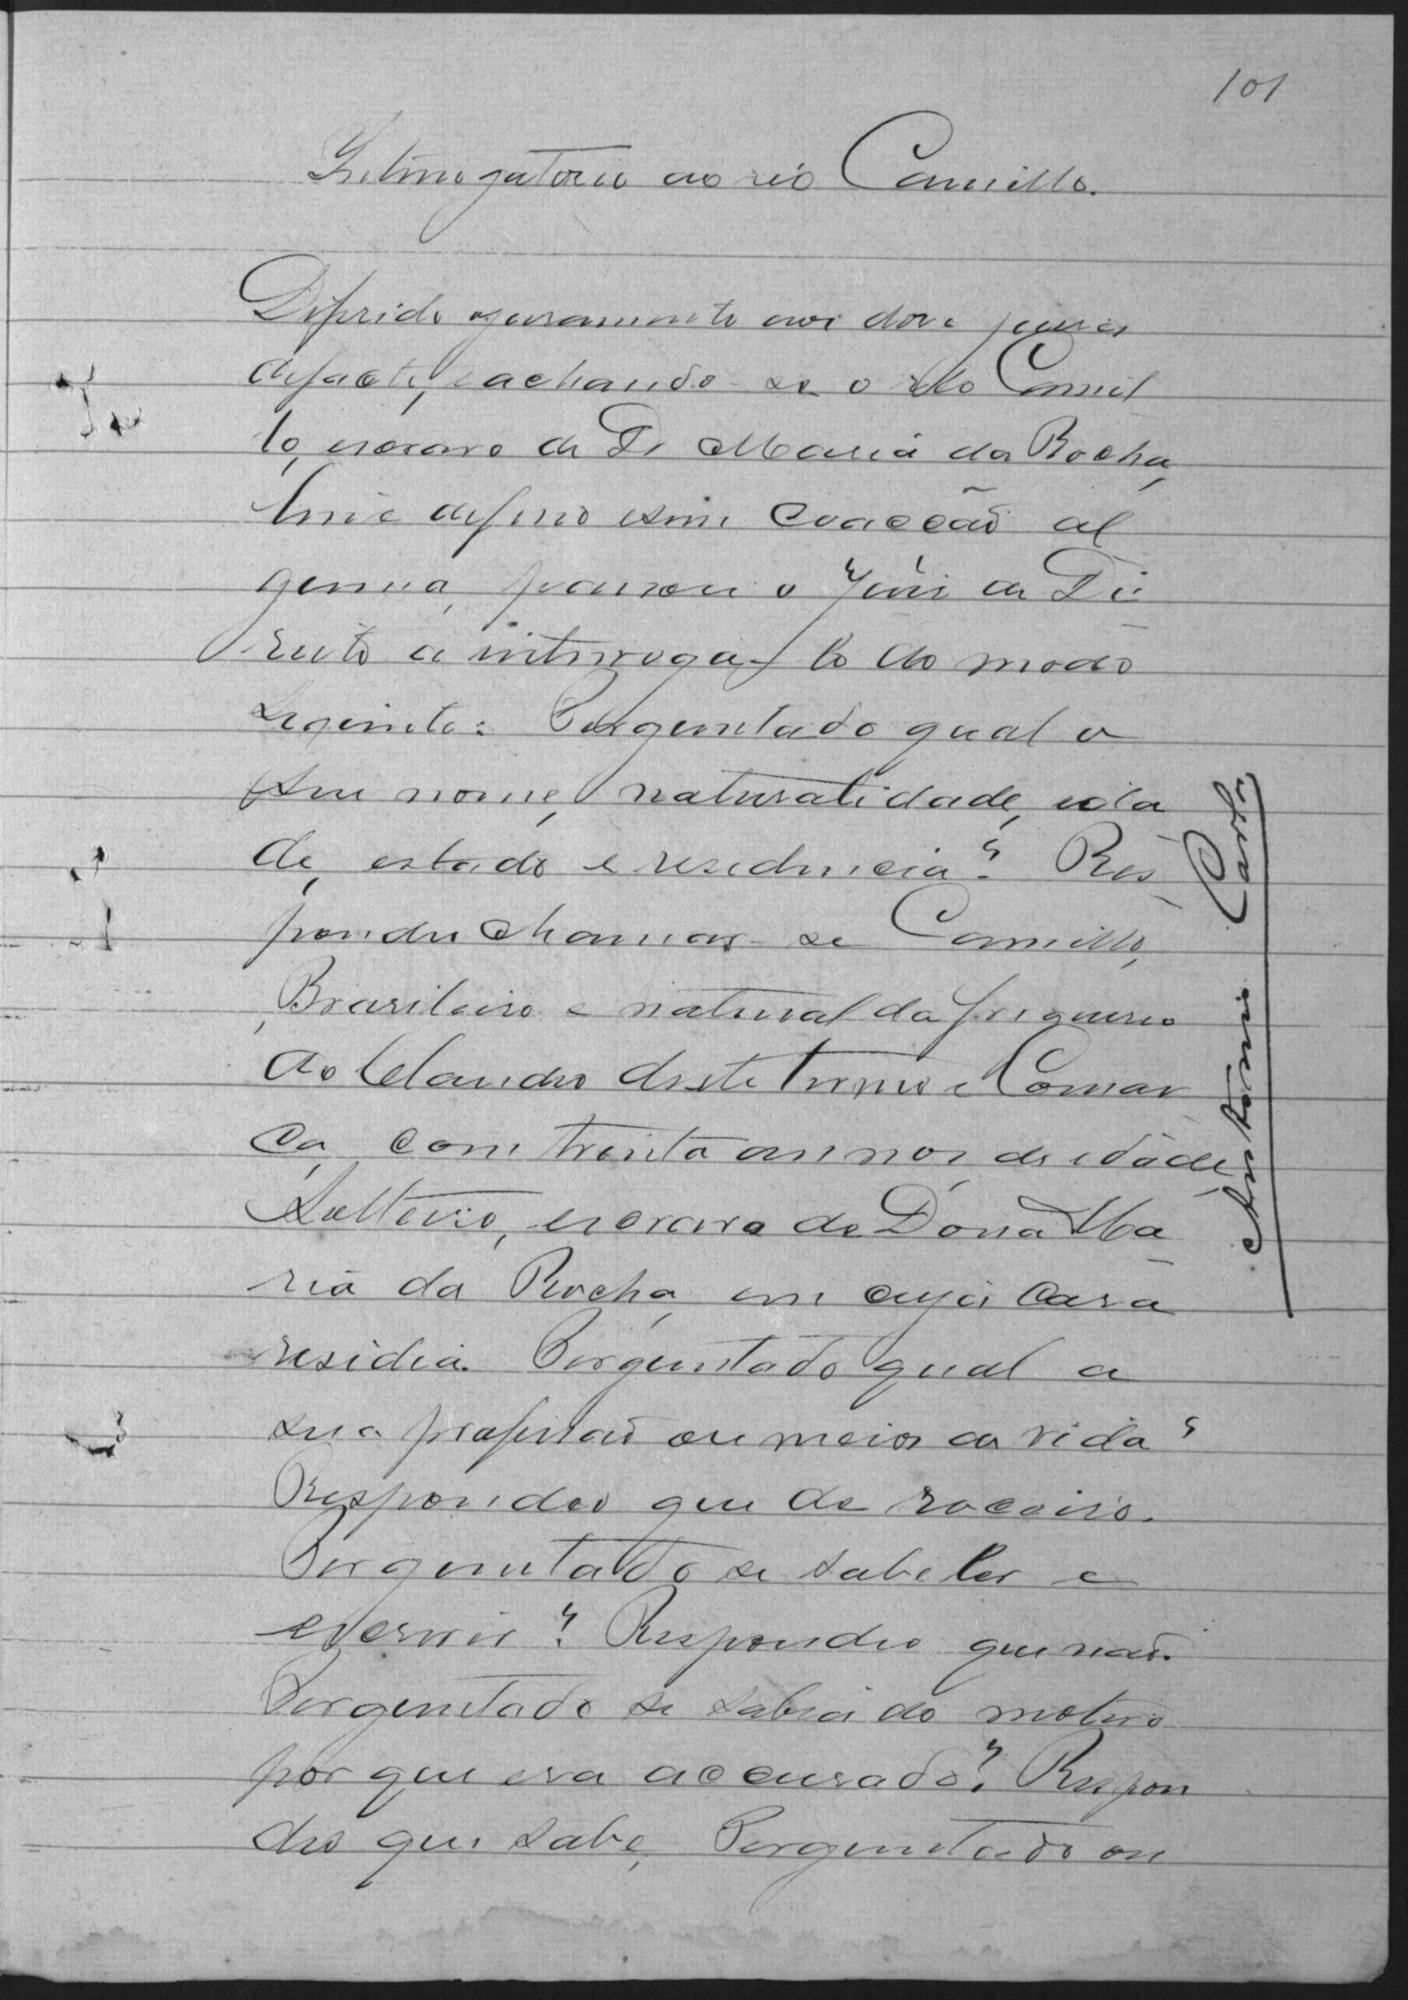 101
Interrogatorio ao réo Camillo.
Deferido o juramento aos doze juises
de facto, e achando-se o réo Camil
lo, escravo de D. Maria da Rocha,
livre de ferro e sem coacção al
guma, passou o Juis de Di
reito a interroga-lo do modo
seguinte: Perguntado qual o
seu nome, naturalidade, ida
de, estado e residencia? Res
pondeu chamar-se Camillo,
Brasileiro e natural da freguesia
do Claudio deste termo e Comar
ca, com trinta annos de idade,
Solteiro, escravo de Dona Ma
ria da Rocha, em cuja casa
residia. Perguntado qual a
sua profissão ou meios de vida?
Respondeo que de roceiro.
Perguntado se sabe ler e
escrever? Respondeo que não.
Perguntado se sabia do motivo
por que era accusado? Respon
deo que sabe, Perguntado on
Antonio Carlos